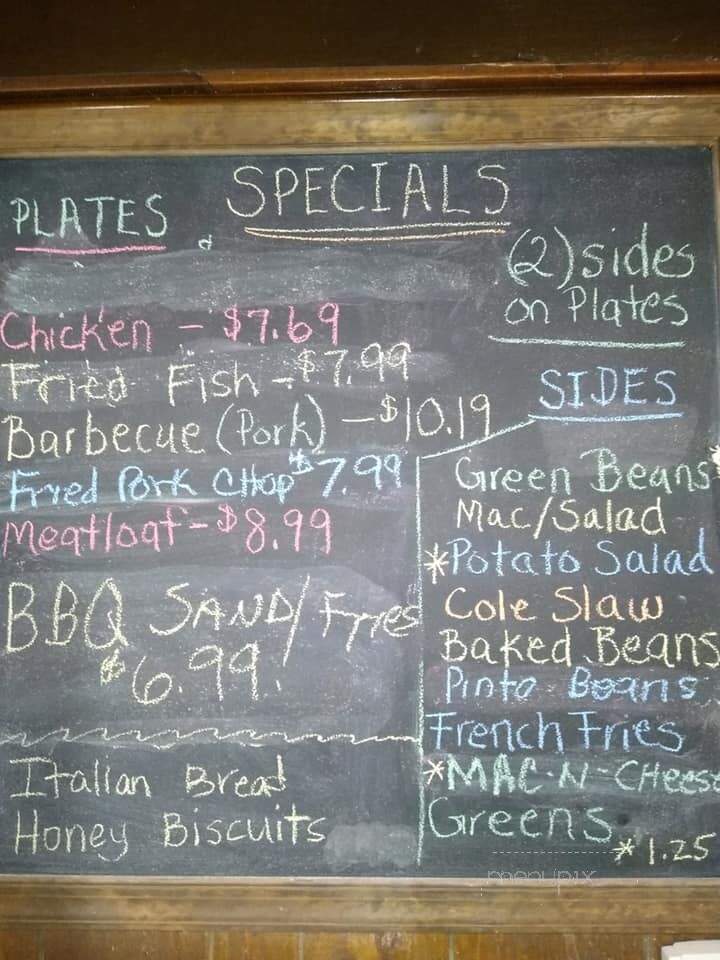 SPECIALS
PLATES
(2) sides
on Plates
Chicken - $7.69
Fried Fish - $7.99
Barbecue (Pork) - $10.19
Fryed Pork Chop $7.99
Meatloaf - $8.99
BBQ SAND/Fries
$6.99
Italian Bread
Honey Biscuits
SIDES
Green Beans
Mac/Salad
*Potato Salad
Cole Slaw
Baked Beans
Pinto Beans
French Fries
*MAC-N-CHeese
Greens
*1.25
menupix